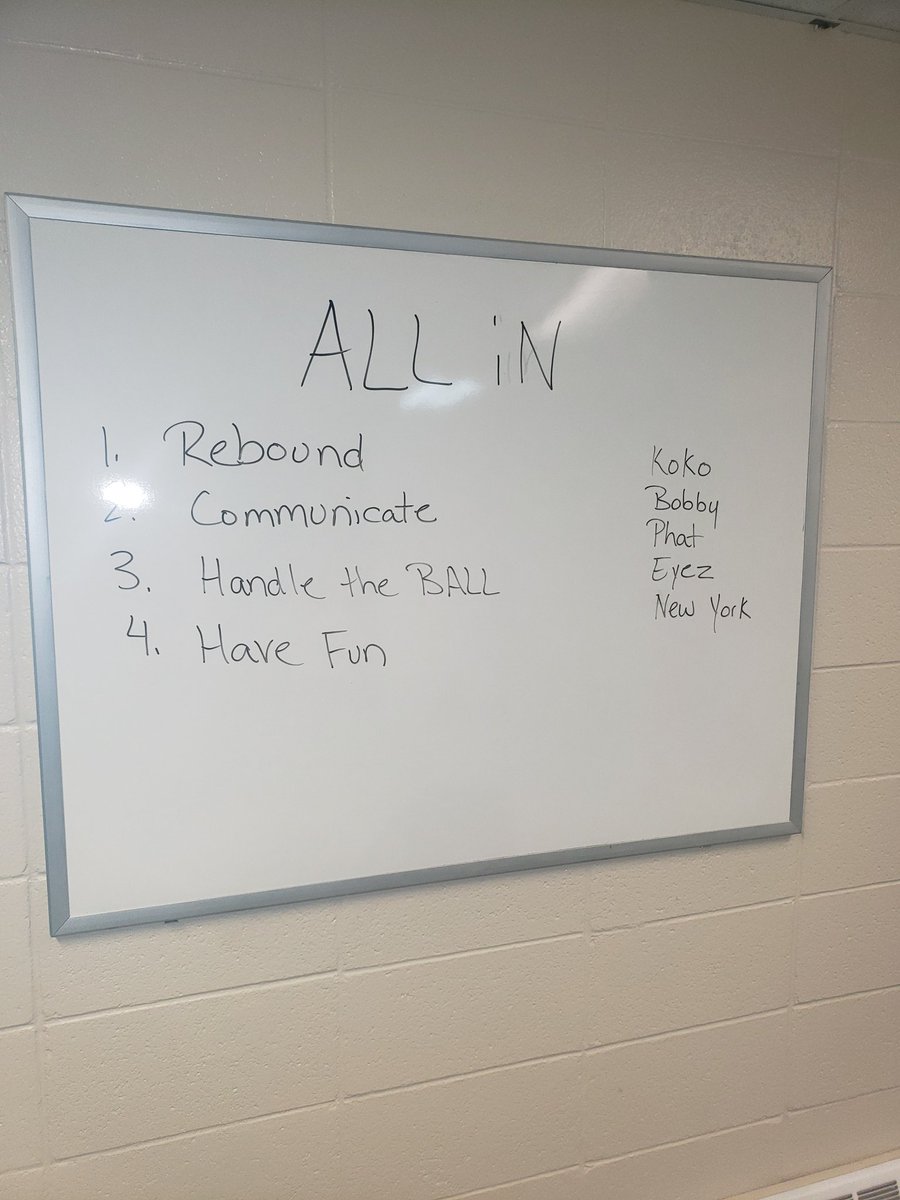 ALL iN
1. Rebound
2. Communicate
3. Handle the BALL
4. Have Fun
Koko
Bobby
Phat
Eyez
New York